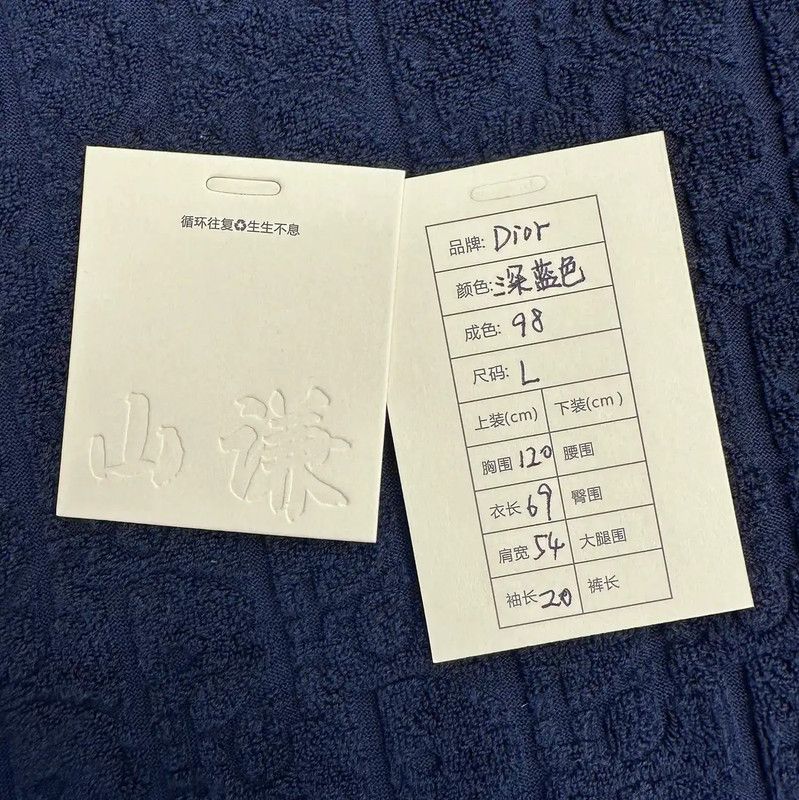 循环往复♻生生不息
山谦
品牌: Dior
颜色: 深蓝色
成色: 98
尺码: L
上装(cm) 下装(cm)
胸围 120 腰围
衣长 69 臀围
肩宽 54 大腿围
袖长 20 裤长